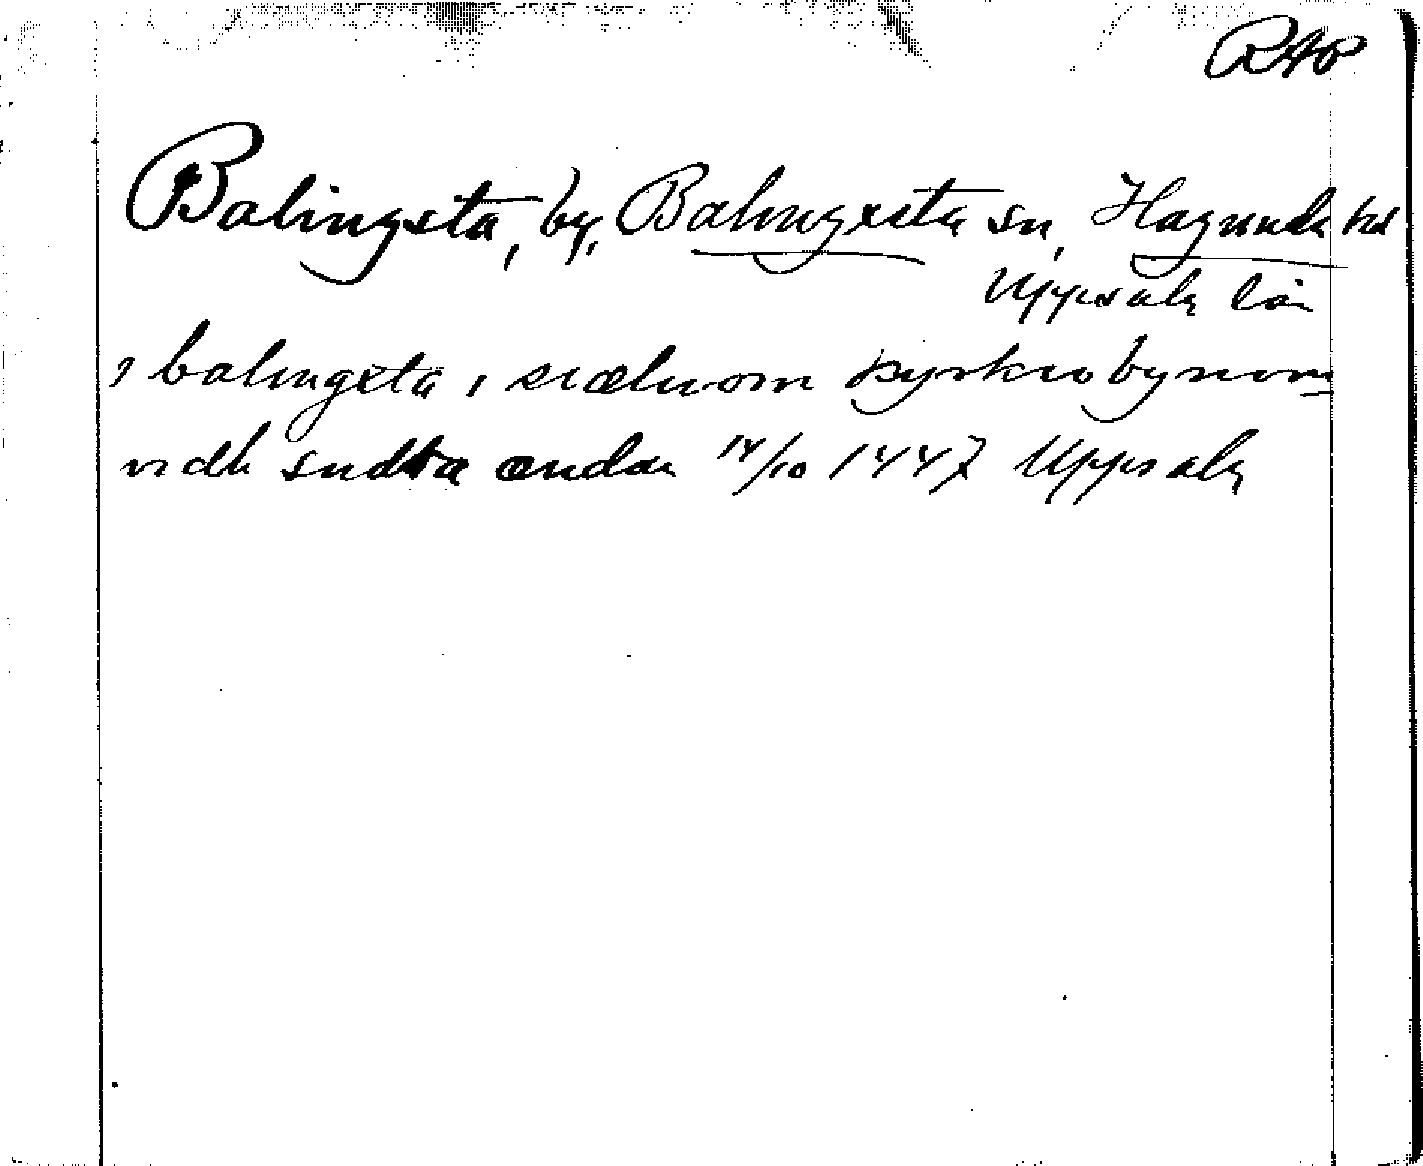 RAP
Balingsta, by, Balingsta sn, Hagunda hd
Uppsala län
i balingxta i siælwom kyrkiobynom
vidh sudhra ændan 14/10 1447 Uppsala